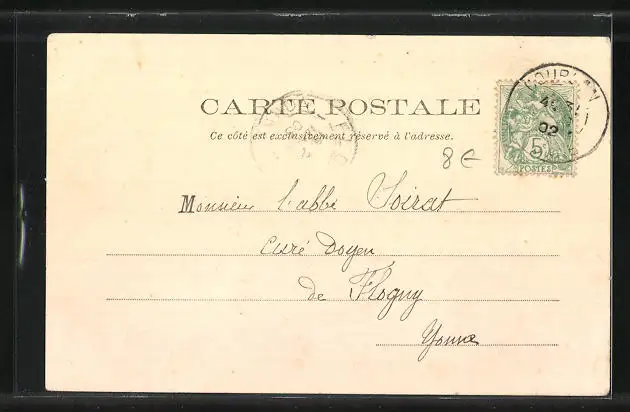 CARTE POSTALE
Ce côté est exclusivement réservé à l'adresse.
8€
5
POSTES
02
Monsieur l'abbé Soirat
Curé Doyen
de Flogny
Yonne